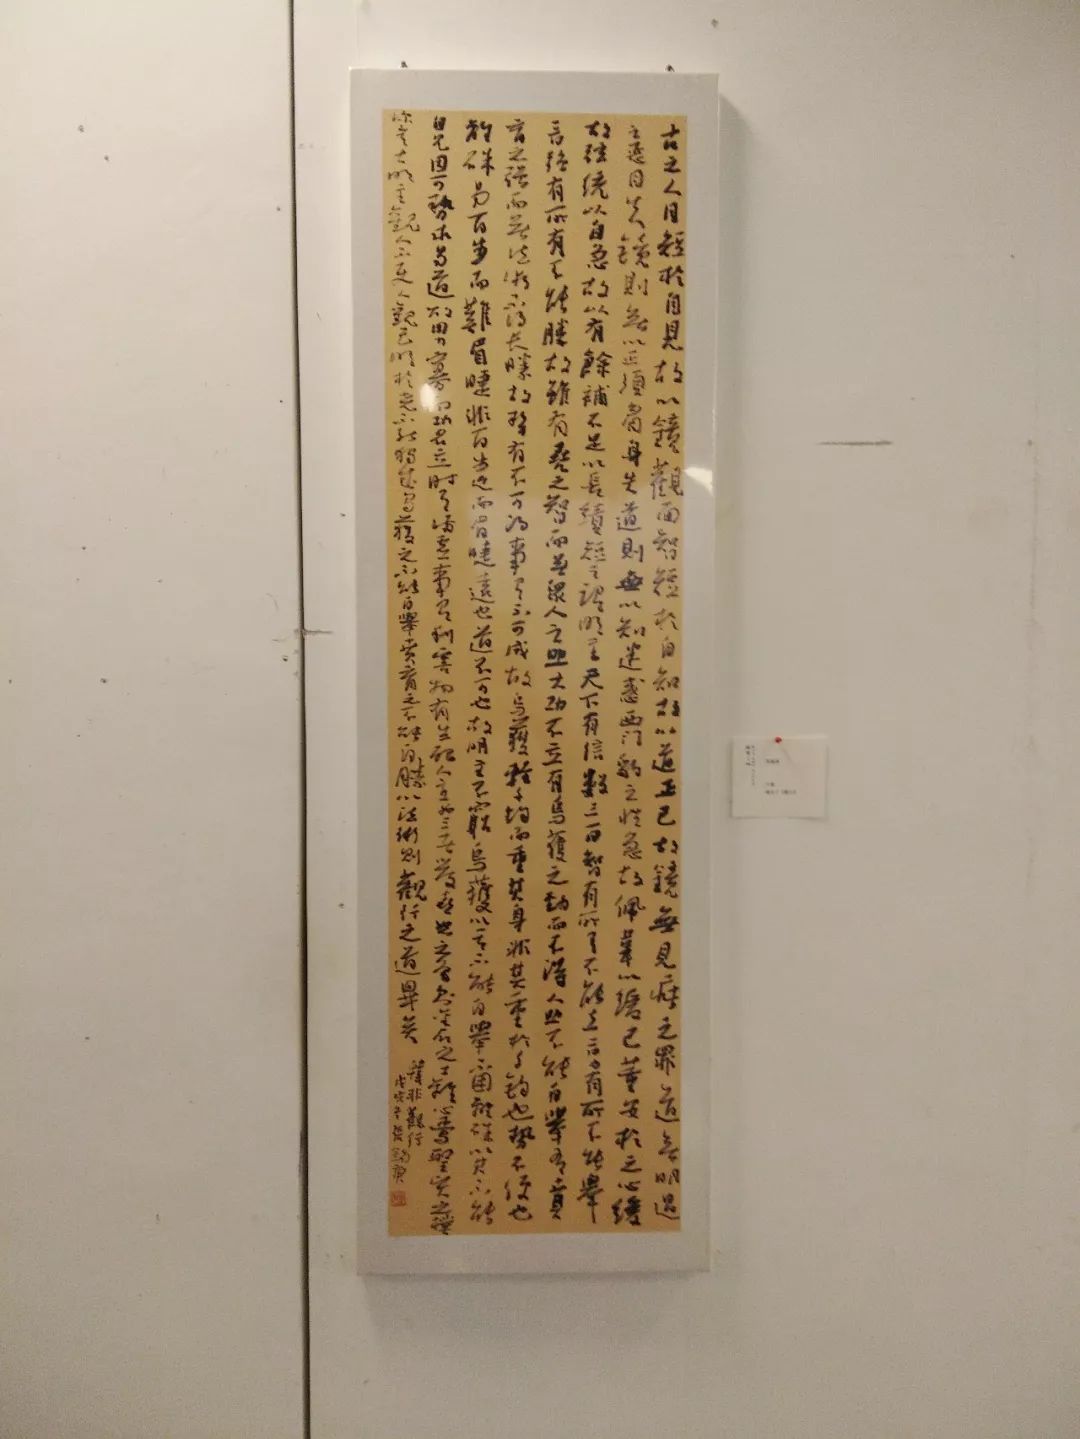 古之人目短於自見故以鏡觀面智短於自知故以道正己故鏡無見疵之罪道無明過
之惡目失鏡則無以正須眉身失道則無以知迷惑西門豹之性急故佩韋以緩己董安於之心緩
故弦以自急故以有餘補不足以長續短之謂明主天下有信數三一曰智有所有不能立二曰力有所不能舉
有所有不能勝故雖有堯之智而無眾人之助大功不立有烏獲之勁而不得人助不能自舉有賁
育之強而無法術不得長勝故勢有不可得事有不可成故烏獲輕千鈞而重其身非其重於千鈞也勢不便也
離硃易百步而難眉睫非百步近而眉睫遠也道不可也故明主不窮烏獲以其不能自舉不困離硃以其不能
自見因可勢求易道故用力寡而功名立時有滿虛事有利害物有生死人主為三者發喜怒之色則金石之士離心焉聖賢之撲
深矣古明主觀人不使人觀己明於堯不能獨成烏獲之不能自舉賁育之不能自勝以法術則觀行之道畢矣
韓非觀行
戊戌冬